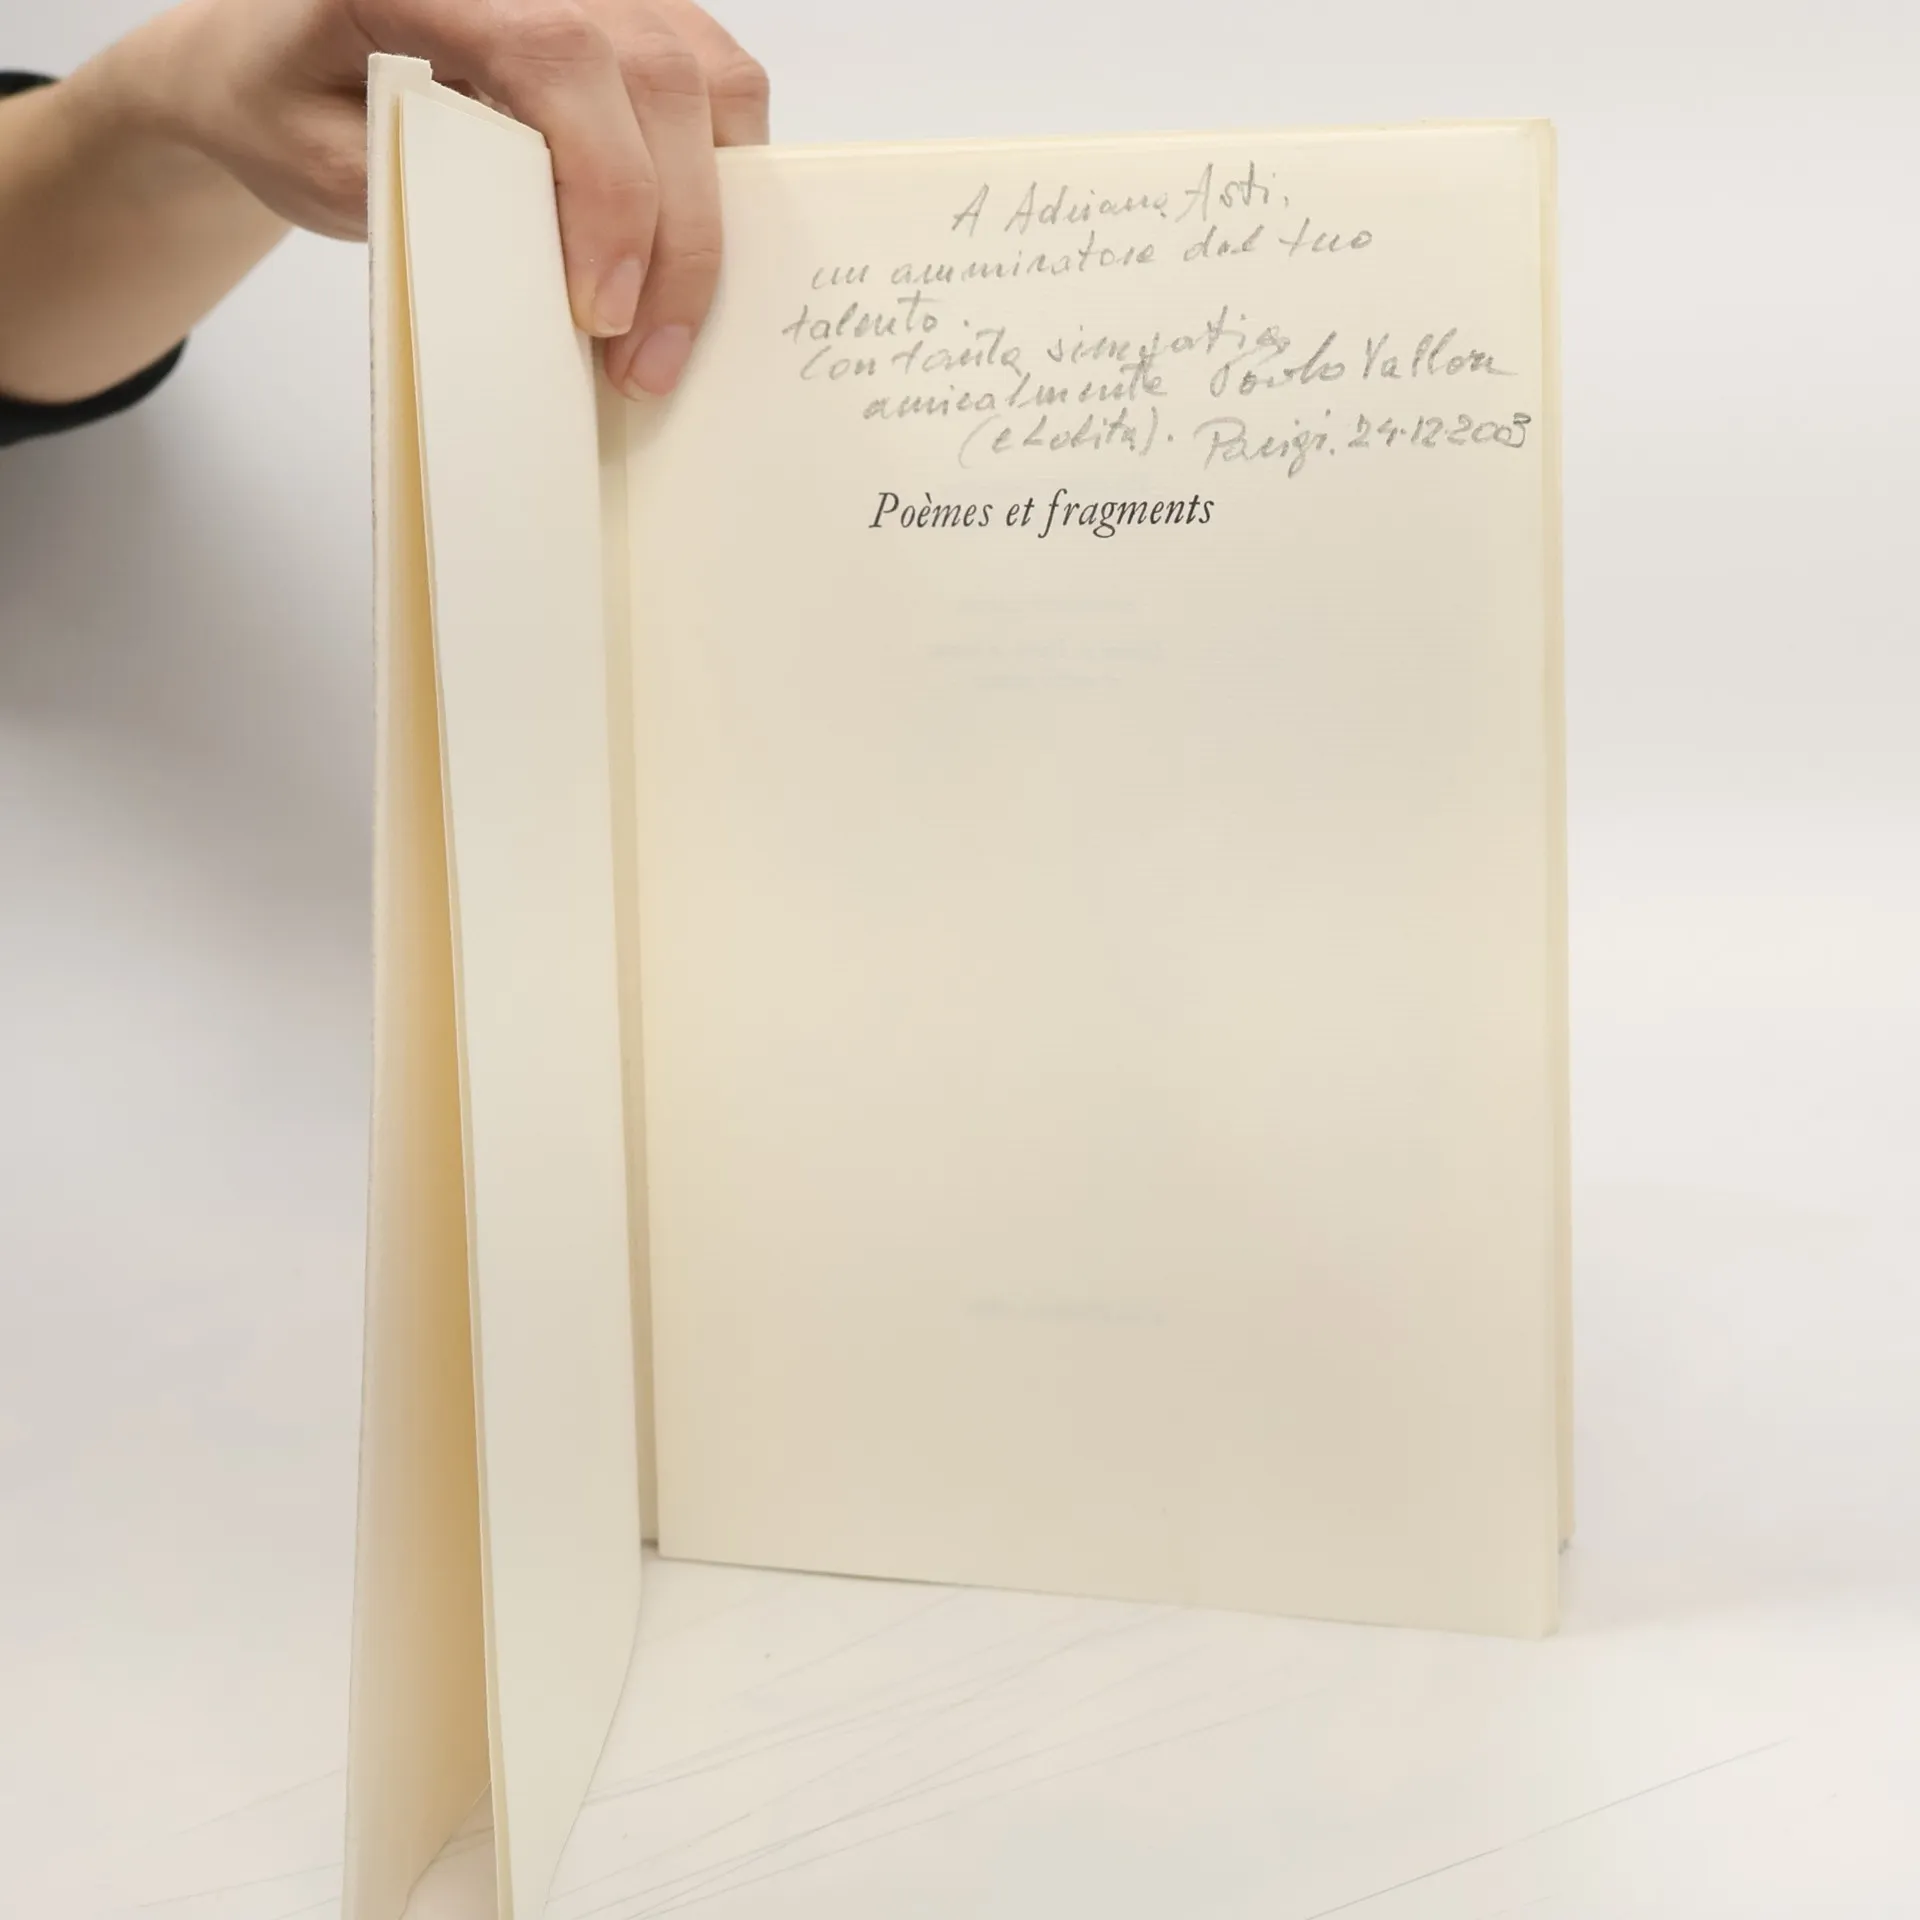 A Adriana Asti,
un ammiratore del tuo
talento.
Con tanta simpatia
amicalmente Paolo Vallon
(e Lolita). Parigi. 24.12.2003
Poèmes et fragments